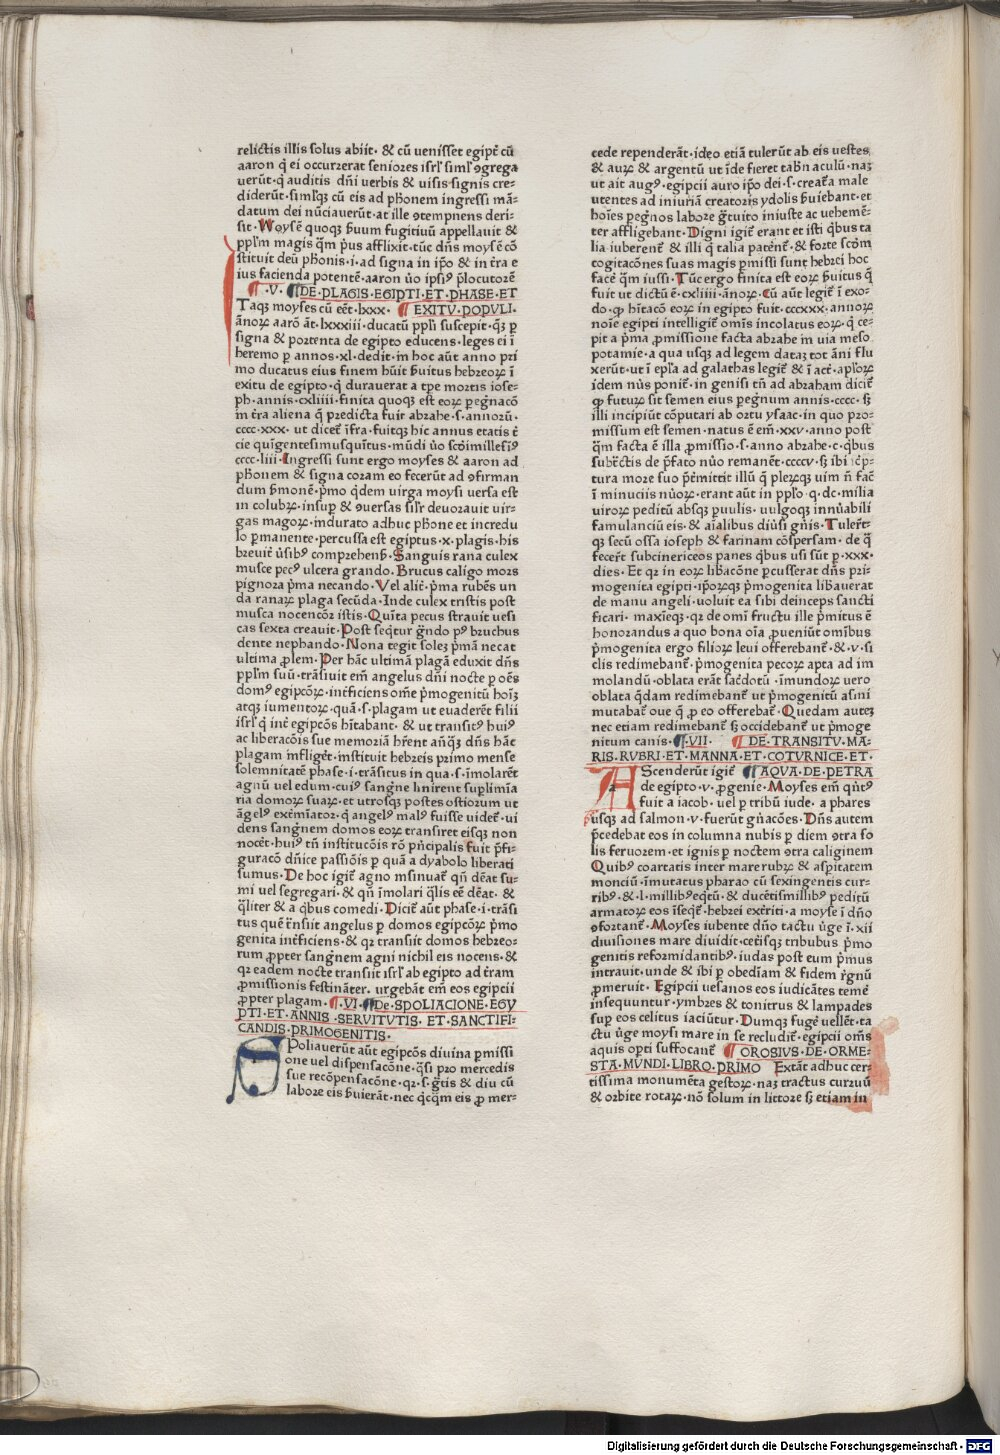 relictis illis solus abiit· & cū uenisset egiptū cū
aaron q̄ ei occurrerat seniores isrl' siml' ꝯgrega
uerūt·q̄ auditis dñi uerbis & uisis signis cre⸗
diderūt·simlꝗ cū eis ad phōnem ingressi mā⸗
datum dei nūciauerūt·at ille ꝯtempnens deri⸗
sit· Moysē quoqꝫ ẜuum fugitiuū appellauit &
ppl'm magis q̄m p̄us afflixit·tūc dn̄s moysē cō
stituit deū phōnis·i·ad signa in ip̄o & in t̄ra e
ius facienda potentē·aaron u̇o ipsiꝰ p̄locutorē
·V· DE·PLAGIS·EGIPTI·ET·PHASE·ET
Taqꝫ moyses cū eēt·lxxx· EXITV·POPVLI·
ānoꝝ aarō āt·lxxxiii·ducatū ppl'i suscepit·qꝫ ꝑ
signa & portenta de egipto educens·leges ei ī
heremo ꝑ annos·xl·dedit·in hoc aūt anno pri
mo ducatus eius finem hūit ẜuitus hebreoꝝ ī
exitu de egipto·q̄ durauerat a tꝑe mortis iose⸗
ph·annis·cxliiii·finita quoqꝫ est eoꝝ ꝑegnacō
in t̄ra aliena q̄ predicta fuit abrahe·s·annorū·
cccc·xxx·ut dicet̄ īfra·fuitqꝫ hic annus etatis t̄
cie quīgentesimusquītus·mūdi u̇o scd̄imillesiꝰ
cccc·liii· Ingressi sunt ergo moyses & aaron ad
phōnem & signa coram eo fecerūt ad ꝯfirman
dum ẜmonē·p̄mo q̄dem uirga moysi uersa est
in colubꝝ·insuꝑ & ꝯuersas sil'r deuorauit uir⸗
gas magoꝝ·indurato adhuc phōne et incredu
lo ꝑmanente·percussa est egiptus·x·plagis·his
breuit̄ u̇sibꝰ comprehensis· Sanguis rana culex
musce pecꝰ ulcera grando· Brucus caligo mors
pignora p̄ma necando· Vel alit̄·p̄ma rubēs un
da ranaꝝ plaga secūda· Inde culex tristis post
musca nocencōr istis· Quīta pecus strauit uesi
cas sexta creauit· Post seqt̄ur ḡndo pꝰ bruchus
dente nephando· Nona tegit solez p̄mā necat
ultima ꝓlem· Per hāc ultimā plagā eduxit dn̄s
ppl'm suū·trāsiuit em̄ angelus dn̄i nocte ꝑ oēs
domꝰ egipcōꝝ·int̄ficiens om̄e p̄mogenitū hoīꝫ
atqꝫ iumentoꝝ·quā·s·plagam ut euaderēt filii
isrl' q̄ int̄ egipcōs hītabant· & ut transitꝰ huiꝰ
ac liberacōis sue memoriā hr̄ent añqꝫ dn̄s hāc
plagam infliget̄·instituit hebreis primo mense
solemnitatē phase·i·trāsitus in qua·s·īmolarēt
agnū uel edum·cuiꝰ sangne linirent suplimīa
ria domoꝝ suaꝝ·et utrosqꝫ postes ostiorum ut
āgelꝰ ext̄miator·q̄ angelꝰ malꝰ fuisse uidet̄·ui
dens sangnem domos eoꝝ transiret eisqꝫ non
nocēt·huiꝰ tn̄ institucōis rō prīcipalis fuit p̄fi⸗
guracō dn̄ice passiōis ꝑ quā a dyabolo liberati
sumus· De hoc igit̄ agno insinuat̄ qn̄ dēat su⸗
mi uel segregari· & qn̄ īmolari q̄lis eē dēat· &
q̄liter & a q̄bus comedi· Dicit̄ aūt phase·i·trāsi
tus quē t̄nsiit angelus ꝑ domos egipcōꝝ p̄mo
genita int̄ficiens· & qꝛ transiit domos hebreo⸗
rum ꝓpter sangnem agni nichil eis nocens· &
qꝛ eadem nocte transiit isrl' ab egipto ad t̄ram
ꝓmissionis festināter· urgebāt em̄ eos egipcii
ꝓpter plagam· ·VI· De·SPOLIACIONE·EGY
PTI·ET·ANNIS·SERVITVTIS· ET·SANCTIFI⸗
CANDIS·PRIMOGENITIS·
SPoliauerūt aūt egipcōs diuina ꝑmissi
one uel dispensacōne·q̄si pro mercedis
sue recōpensacōne·qꝛ·s·gr̄tis & diu cū
labore eis ẜuierāt·nec q̄cq̄m eis ꝓ mer⸗
cede rependerāt·ideo etiā tulerūt ab eis uestes
& auꝝ & argentū ut īde fieret tab̄naculū·naꝫ
ut ait augꝰ·egipcii auro ip̄o dei·s·creat̄a male
utentes ad iniuriā creatoris ydolis ẜuiebant·et
hoīes peḡnos labore ḡtuito iniuste ac uehemē⸗
ter affligebant· Digni igit̄ erant et isti q̄bus ta
lia iuberent̄ & illi q̄ talia patent̄· & forte scd̄m
cogitacōnes suas magis ꝑmissi sunt hebrei hoc
facē q̄m iussi· Tūc ergo finita est eoꝝ ẜuitus q̄
fuit ut dictū ē·cxliiii·ānoꝝ· Cū aūt legit̄ ī exo⸗
do·ꝙ hītacō eoꝝ in egipto fuit·cccxxx·annoꝝ
noīe egipti intelligit̄ om̄is incolatus eoꝝ·q̄ ce⸗
pit a p̄ma ꝓmissione facta abrahe in uia meso
potamie·a qua usqꝫ ad legem dataꝫ tot āni flu
xerūt·ut ī epl'a ad galathas legit̄ & ī act̄·apl'oꝝ
idem nūs ponit̄·in genisi tn̄ ad abraham dicit̄
ꝙ futuꝝ sit semen eius peḡnum annis·cccc·sꝫ
illi incipiūt cōputari ab ortu ysaac·in quo pro⸗
missum est semen·natus ē em̄·xxv·anno post
q̄m facta ē illa ꝓmissio·s·anno abrahe·c·q̄bus
subt̄ctis de p̄fato nūo remanēt·ccccv·sꝫ ibi scp̄⸗
tura more suo p̄t̄mittit illū q̄ pleꝝqꝫ uim n̄ fac̄
ī minuciis nūoꝝ·erant aūt in ppl'o·q·dc·milia
uiroꝝ peditū absqꝫ ꝑuulis·uulgoqꝫ innūabili
famulanciū eis·& aīalibus diu̇si gn̄is· Tuler̄t⸗
qꝫ secū ossa ioseph & farinam cōspersam·de q̄
fecer̄t subcinericeos panes q̄bus usi sūt ꝑ·xxx·
dies· Et qꝛ in eoꝝ lib̄acōne ꝑcusserat dn̄s pri⸗
mogenita egipti·ip̄oꝝqꝫ p̄mogenita lib̄auerat
de manu angeli·uoluit ea sibi deinceps sancti
ficari· maxieqꝫ·qꝛ de omī fructu ille p̄mitus ē
honorandus a quo bona oīa ꝓueniūt om̄ibus
p̄mogenita ergo filioꝝ leui offerebant̄·&·v·si
clis redimebant̄·p̄mogenita pecoꝝ apta ad im
molandū·oblata erāt sac̄dotū·īmundoꝝ uero
oblata q̄dam redimebant̄ ut p̄mogenitū asini
mutabat̄ oue q̄ ꝓ eo offerebat̄· Quedam autez
nec etiam redimebant̄ sꝫ occidebant̄ ut p̄moge
nitum canis· ·VII· DE·TRANSITV·MA⸗
RIS·RVBRI·ET·MANNA·ET·COTVRNICE·ET·
AScenderūt igit̄ AQVA·DE·PETRA
de egipto·v·ꝓgenie· Moyses em̄ qn̄tꝰ
fuit a iacob·uel ꝑ tribū iude·a phares
usqꝫ ad salmon·v·fuerūt gn̄acōes· Dn̄s autem
p̄cedebat eos in columna nubis ꝑ diem ꝯtra so
lis feruorem·et ignis ꝑ noctem ꝯtra caliginem
Quibꝰ coartatis inter mare rubꝝ & aspitatem
monciū·īmutatus pharao cū sexingentis cur⸗
ribꝰ·&·l·millibꝰeqtū·& ducētismillibꝰ peditū
armatoꝝ eos īseqt̄·hebrei ext̄riti·a moyse ī dn̄o
ꝯfortant̄· Moyses iubente dn̄o tactu u̇ge ī·xii
diuisiones mare diuidit·cet̄isqꝫ tribubus p̄mo
genitis reformidantibꝰ·iudas post eum p̄mus
intrauit·unde & ibi ꝑ obediam & fidem r̄gnū
ꝓmeruit· Egipcii uesanos eos iudicātes temē
insequuntur·ymbres & tonitrus & lampades
suꝑ eos celitus iaciūtur· Dumqꝫ fugē uellēt·ta
ctu u̇ge moysi mare in se recludit̄·egipcii om̄s
aquis opti suffocant̄ OROSIVS·DE·ORME⸗
STA·MVNDI·LIBRO·PRIMO Extāt adhuc cer
tissima monumēta gestoꝝ·naꝫ tractus curruū
& orbite rotaꝝ·nō solum in littore sꝫ etiam in
Digitalisierung gefördert durch die Deutsche Forschungsgemeinschaft - DFG